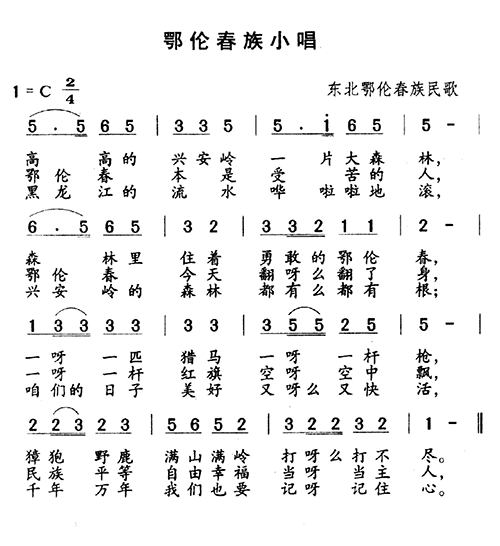 鄂伦春族小唱
1=C 2/4 东北鄂伦春族民歌
5 . 5 6 5 | 3 3 5 | 5 . i 6 5 | 5 - |
高 高的 兴安岭 一 片大森 林,
鄂 伦 春 本 是 受 苦的 人,
黑 龙 江的 流 水 哗 啦啦地 滚,
6 . 5 6 5 | 3 2 | 3 3 2 1 1 | 2 - |
森 林里 住着 勇敢的鄂伦 春,
鄂伦 春 今天 翻呀么翻了 身,
兴安 岭的 森林 都有么都有 根;
1 3 3 3 3 | 3 3 | 3 5 5 2 5 | 5 - |
一呀 一匹 猎马 一呀 一杆 枪,
一呀 一杆 红旗 空呀 空中 飘,
咱们的日子 美好 又呀么又快 活,
2 2 3 2 3 | 5 6 5 2 | 3 2 2 3 2 | 1 - ‖
獐狍 野鹿 满山满岭 打呀么打不 尽。
民族 平等 自由幸福 当呀 当主 人,
千年 万年 我们也要 记呀 记住 心。